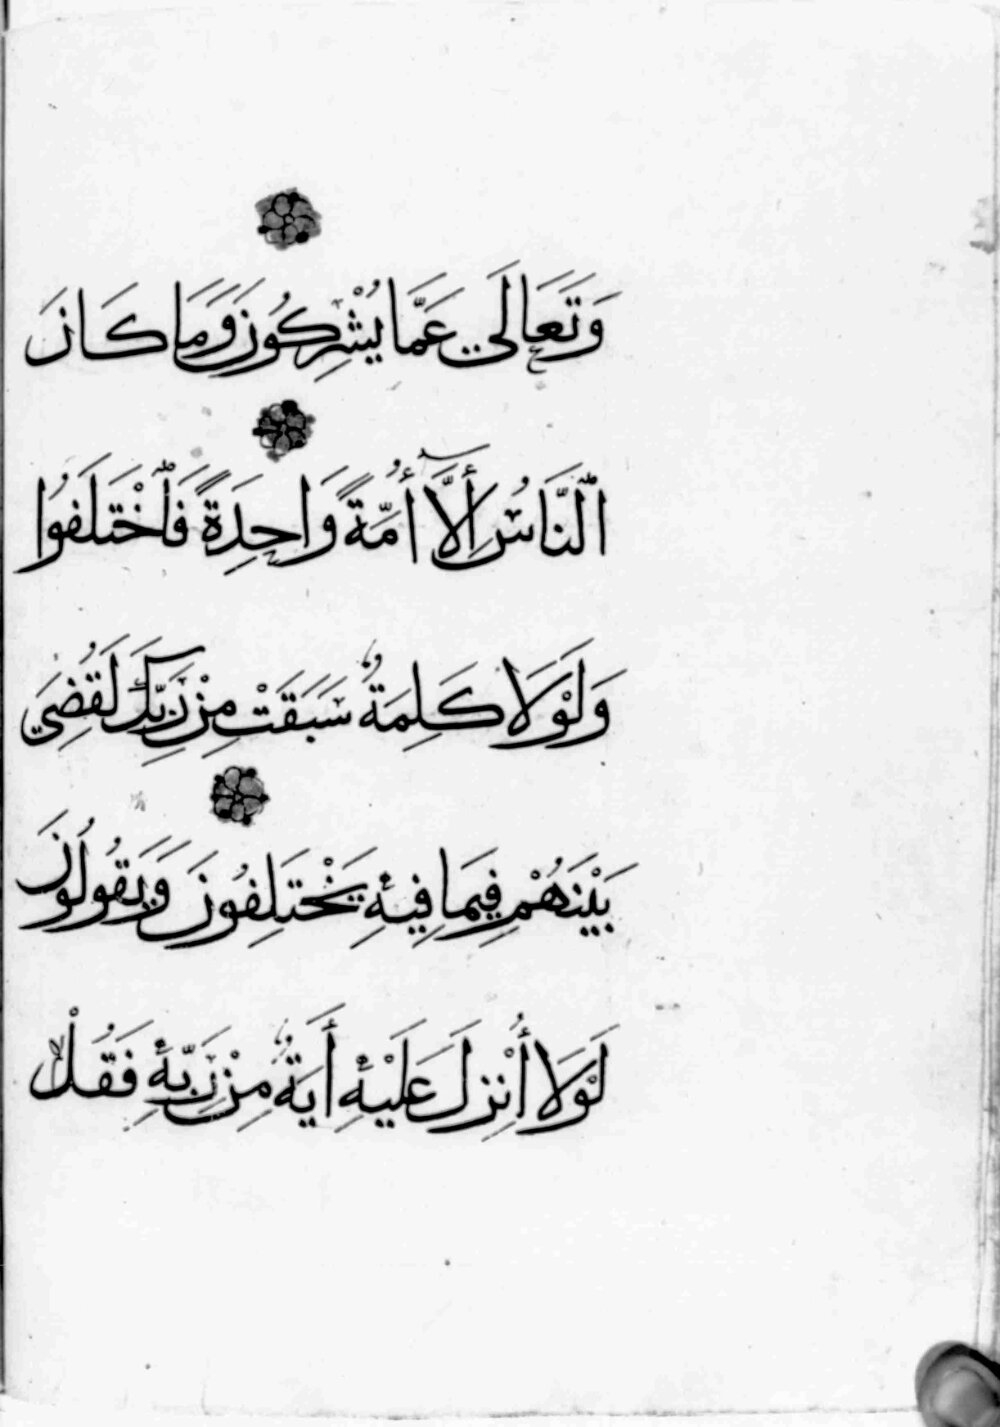 وَتَعَالَى عَمَّا يُشْرِكُونَ وَمَا كَانَ
اَلنَّاسُ إِلَّا أُمَّةً وَاحِدَةً فَاخْتَلَفُوا
وَلَوْلَا كَلِمَةٌ سَبَقَتْ مِنْ رَبِّكَ لَقُضِيَ
بَيْنَهُمْ فِيمَا فِيهِ يَخْتَلِفُونَ وَيَقُولُونَ
لَوْلَا أُنْزِلَ عَلَيْهِ أَيَةٌ مِنْ رَبِّهِ فَقُلْ